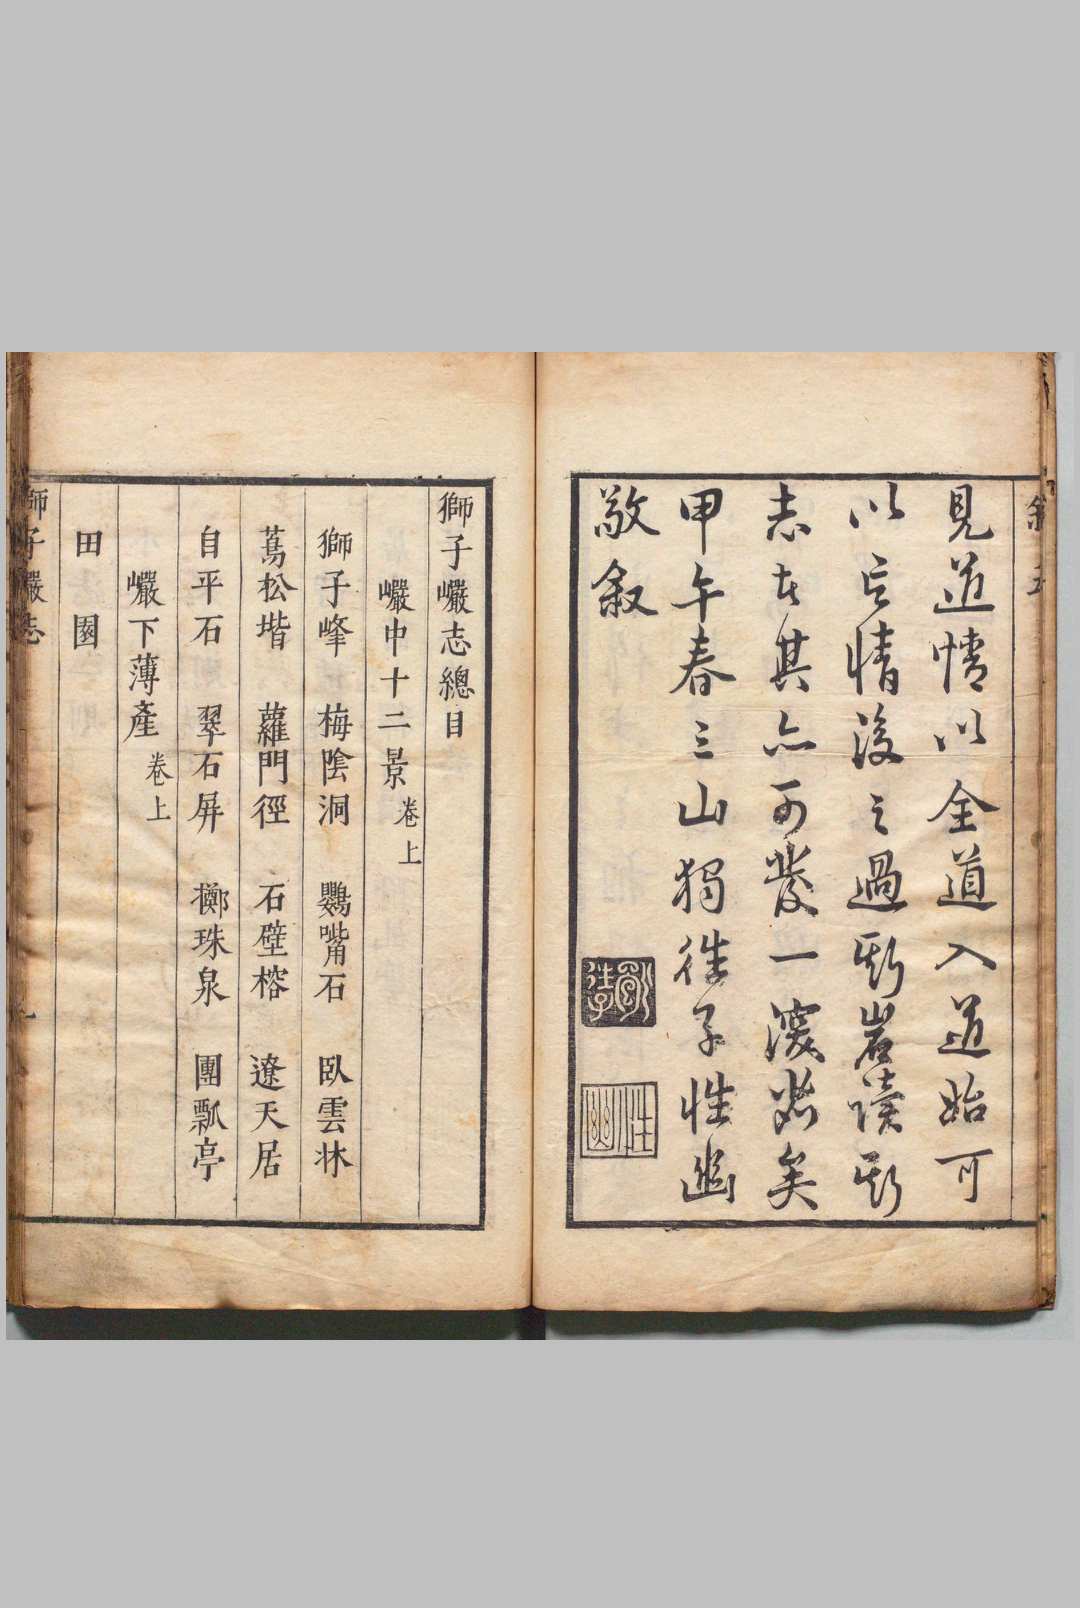 敘 五
見道情以全道入道始可
以忘情後之過斯岩讀斯
志者其亦可發一深省矣
甲午春三山獨往子性幽
敬叙
獨往子
性幽
獅子巖志總目
巖中十二景 卷上
獅子峰 梅陰洞 鸚嘴石 臥雲牀
蔦松堦 蘿門徑 石壁榕 遼天居
自平石 翠石屏 擲珠泉 團瓢亭
巖下薄產 卷上
田園
獅子巖志